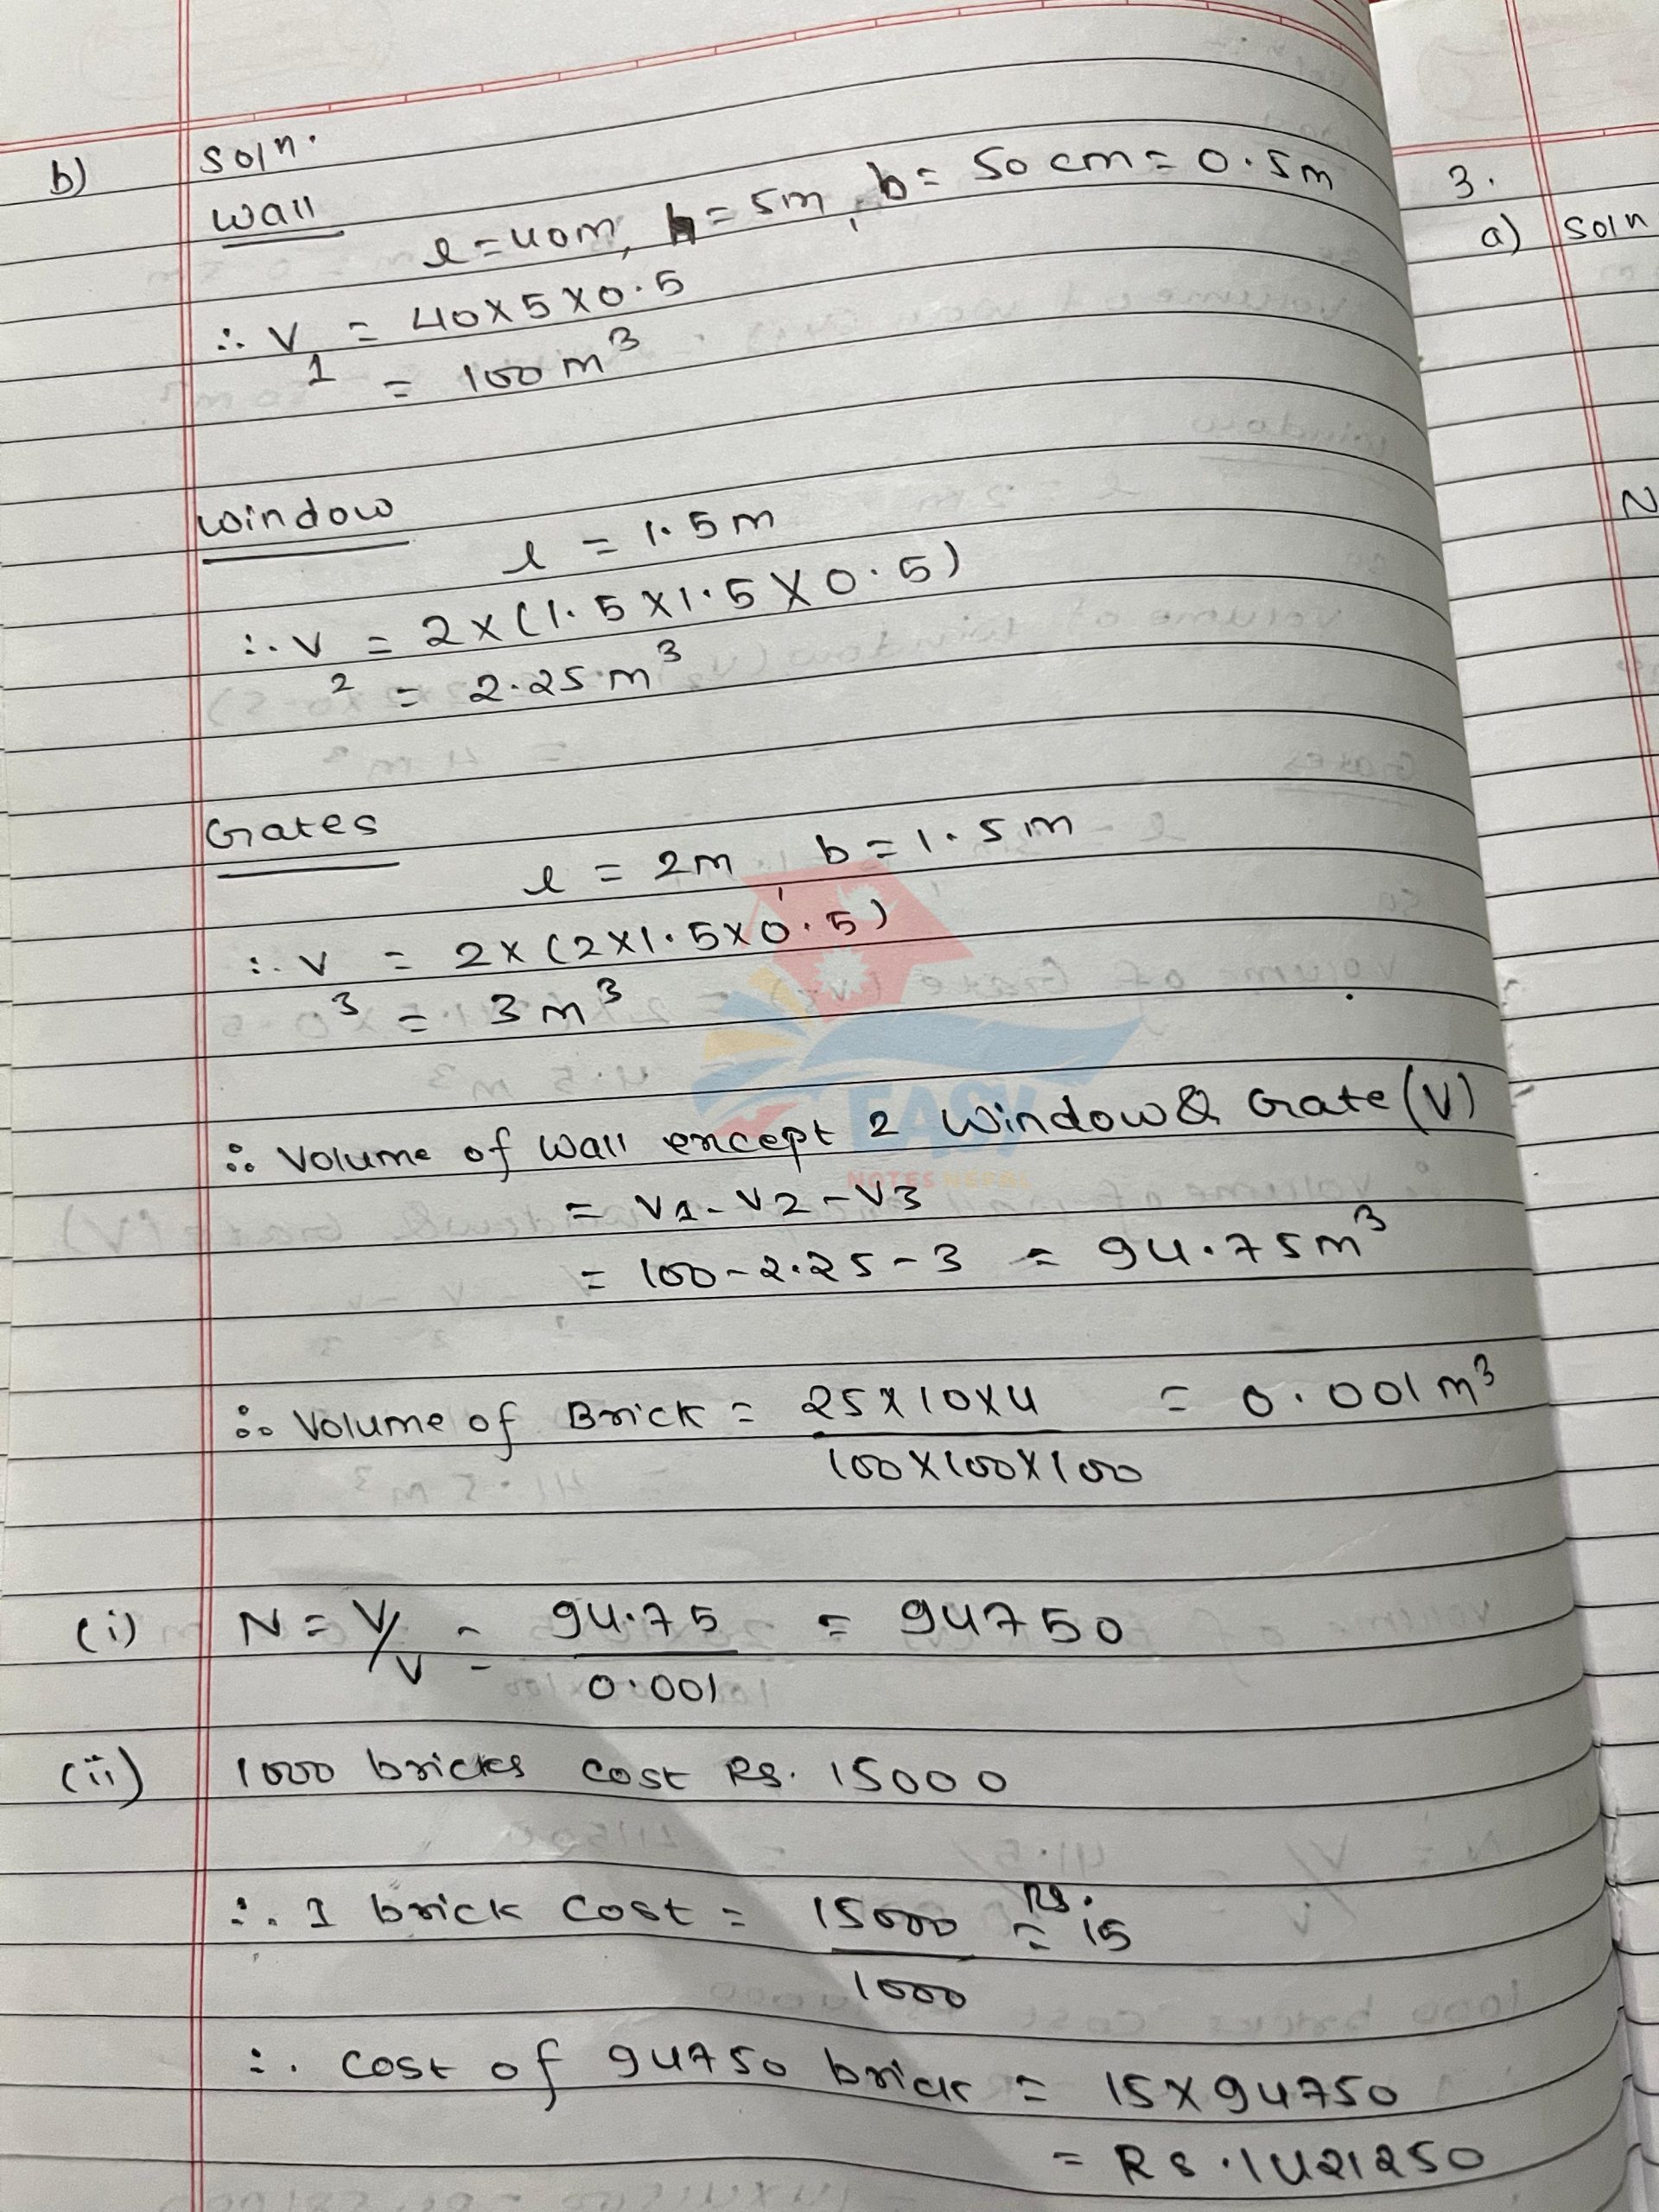 b) Soln.
Wall
l = 40m, h = 5m, b = 50 cm = 0.5m
∴ V1 = 40×5×0.5
= 100 m³
Window
l = 1.5m
∴ V2 = 2×(1.5×1.5×0.5)
= 2.25m³
Gates
l = 2m, b = 1.5m
∴ V3 = 2×(2×1.5×0.5)
= 3m³
∴ Volume of Wall except 2 Window & Gate (V)
= V1 - V2 - V3
= 100 - 2.25 - 3 = 94.75m³
∴ Volume of Brick = 25×10×4 = 0.001m³
100×100×100
(i) N = V/v = 94.75 = 94750
0.001
(ii) 1000 bricks cost Rs. 15000
∴ 1 brick cost = 15000 = Rs. 15
1000
∴ Cost of 94750 brick = 15×94750
= Rs. 1421250
3.
a) Soln
N
EASY
NOTES NEPAL